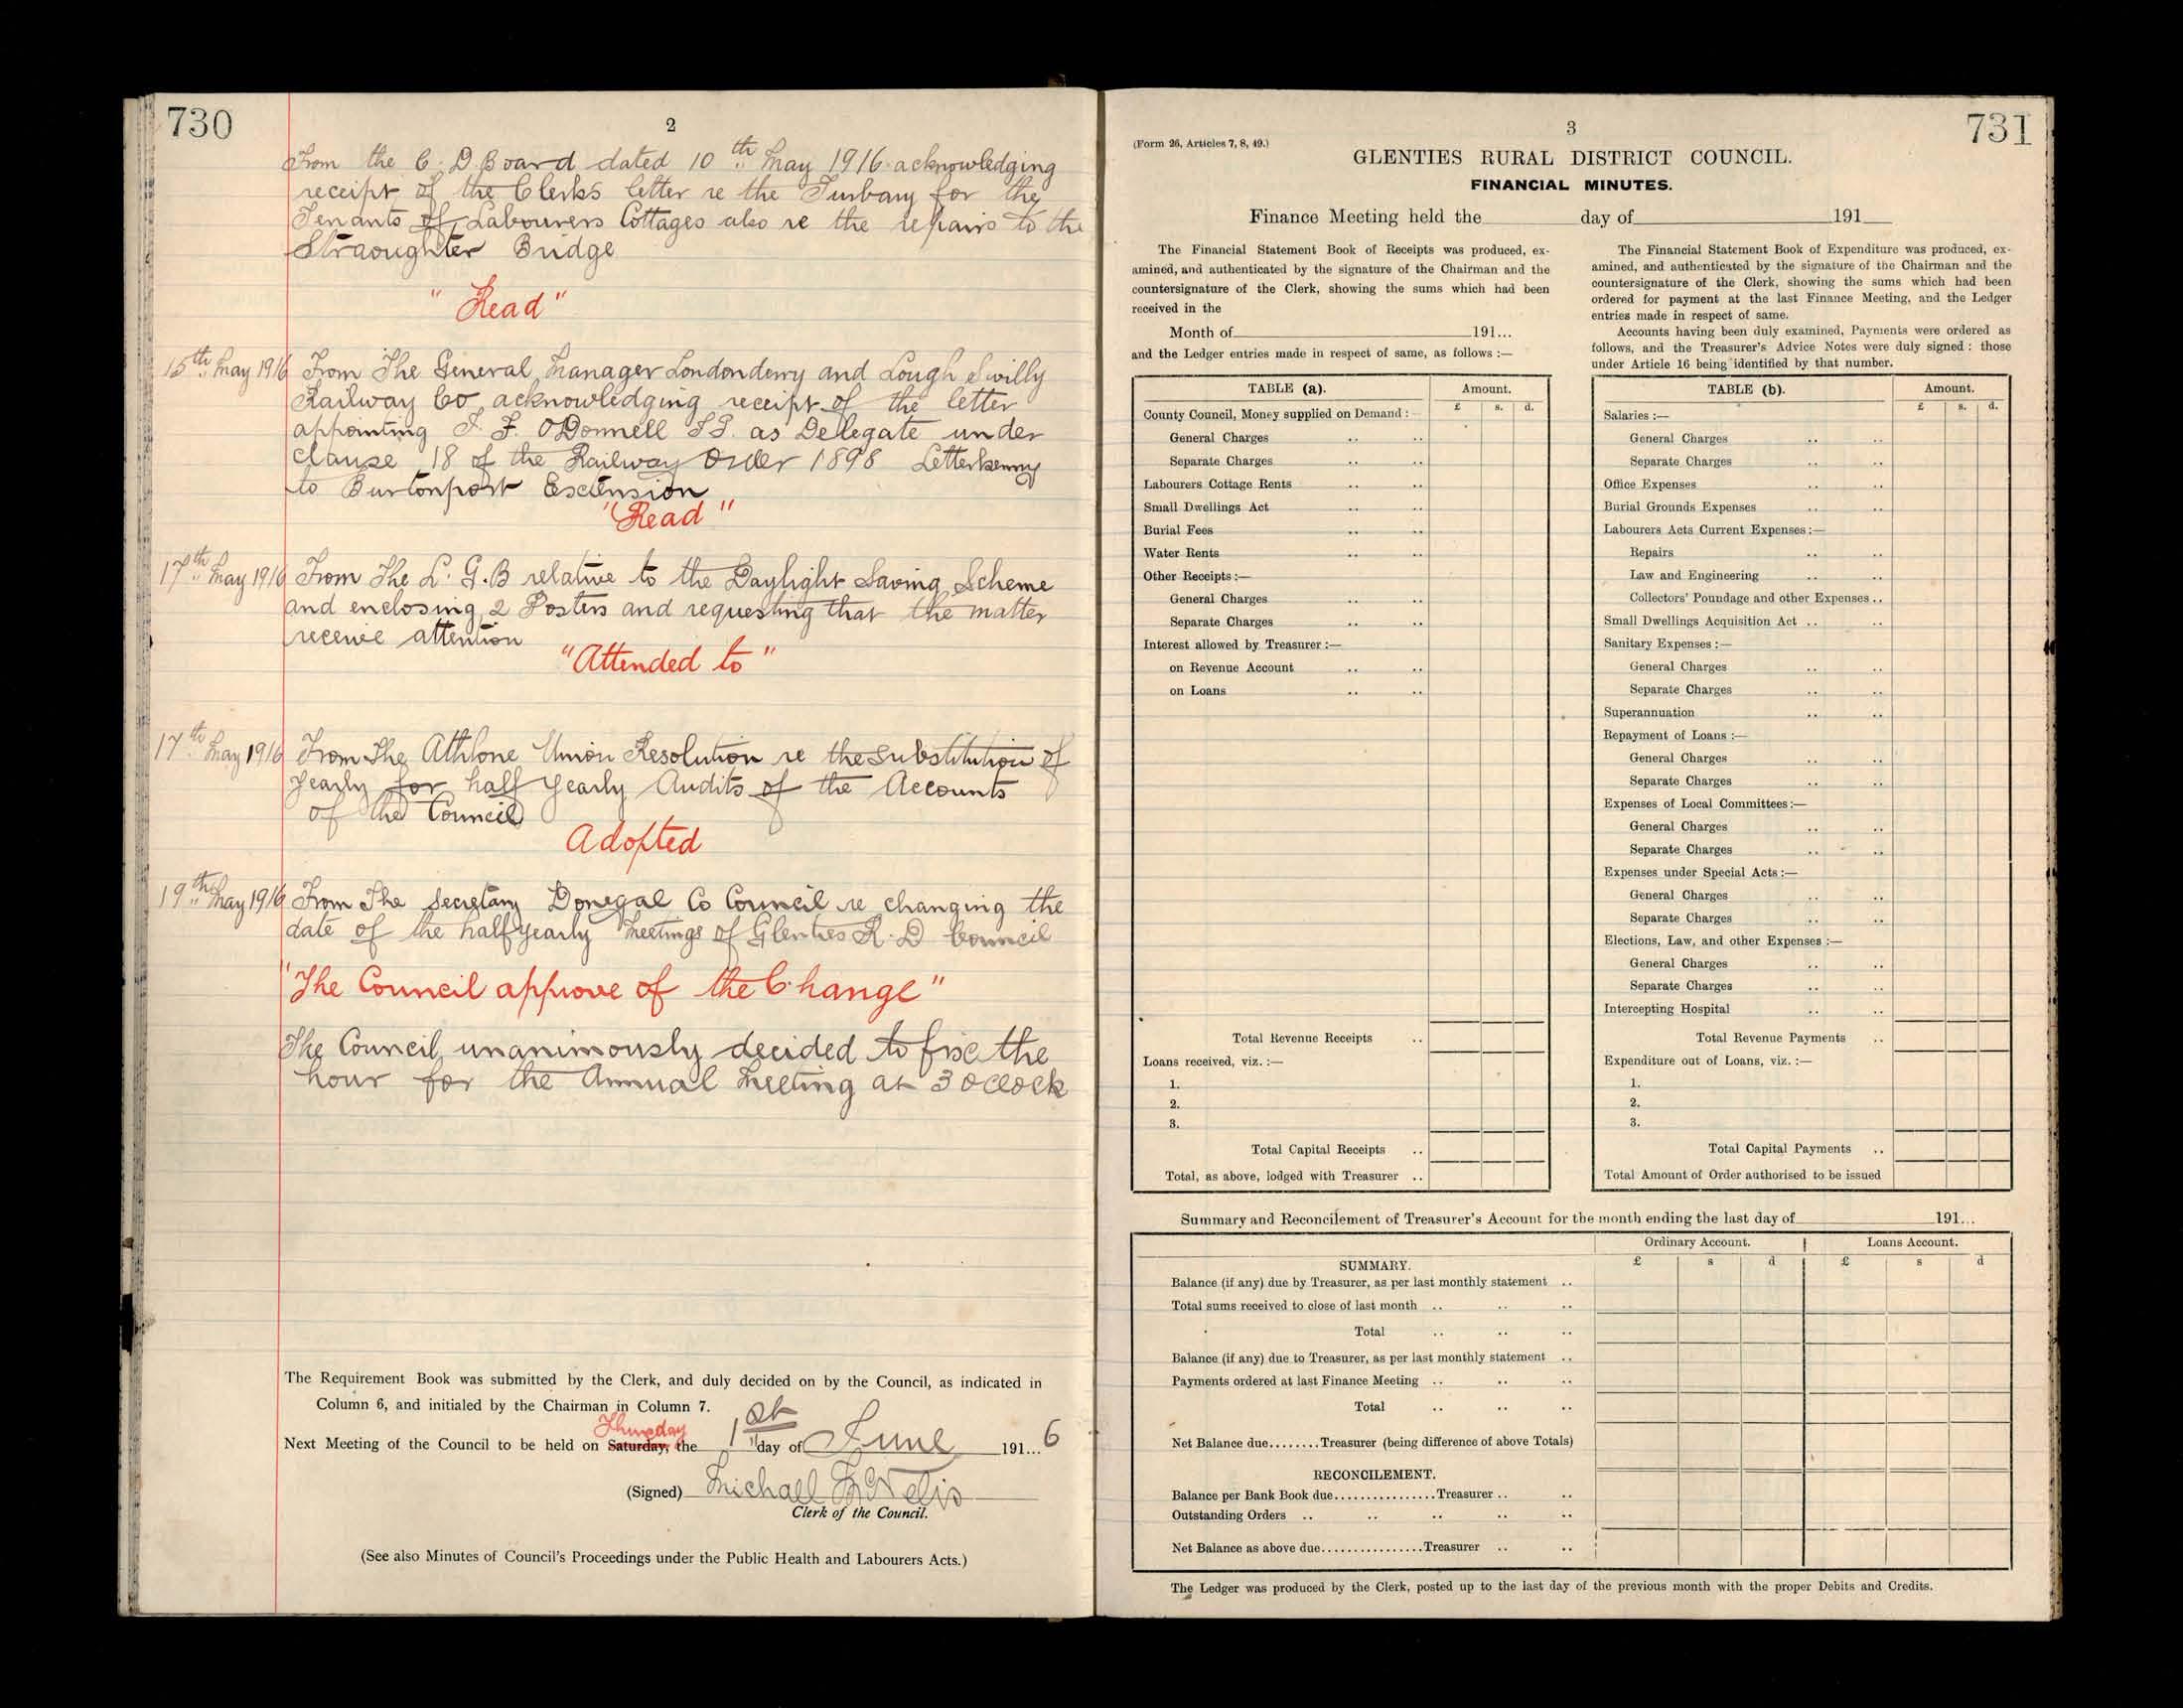 730
2
From the C. D. Board dated 10th May 1916 acknowledging
receipt of the Clerks letter re the Turbary for the
Tenants of Labourers Cottages also re the repairs to the
Straoughter Bridge
"Read"
15th May 1916 From The General Manager Londonderry and Lough Swilly
Railway Co acknowledging receipt of the letter
appointing J. F. O'Donnell as Delegate under
Clause 18 of the Railway Order 1898 Letterkenny
to Burtonport Extension
"Read"
17th May 1916 From The L. G. B relative to the Daylight Saving Scheme
and enclosing 2 Posters and requesting that the matter
receive attention
"Attended to"
17th May 1916 From The Athlone Union Resolution re the substitution of
Yearly for half Yearly Audits of the Accounts
of the Council
Adopted
19th May 1916 From The Secretary Donegal Co Council re changing the
date of the half yearly Meetings of Glenties R. D Council
"The Council approve of the Change"
The Council unanimously decided to fix the
hour for the Annual Meeting at 3 oclock
The Requirement Book was submitted by the Clerk, and duly decided on by the Council, as indicated in
Column 6, and initialed by the Chairman in Column 7.
Thursday
Next Meeting of the Council to be held on Saturday, the 1st day of June 191...6
(Signed) Michael McNelis
Clerk of the Council.
(See also Minutes of Council's Proceedings under the Public Health and Labourers Acts.)
3
731
(Form 26, Articles 7, 8, 49.)
GLENTIES RURAL DISTRICT COUNCIL.
FINANCIAL MINUTES.
Finance Meeting held the day of 191
The Financial Statement Book of Receipts was produced, ex-
amined, and authenticated by the signature of the Chairman and the
countersignature of the Clerk, showing the sums which had been
received in the
Month of 191...
and the Ledger entries made in respect of same, as follows :—
TABLE (a). Amount.
£ s. d.
County Council, Money supplied on Demand :
General Charges .. ..
Separate Charges .. ..
Labourers Cottage Rents .. ..
Small Dwellings Act .. ..
Burial Fees .. ..
Water Rents .. ..
Other Receipts :—
General Charges .. ..
Separate Charges .. ..
Interest allowed by Treasurer :—
on Revenue Account .. ..
on Loans .. ..
Total Revenue Receipts ..
Loans received, viz. :—
1.
2.
3.
Total Capital Receipts ..
Total, as above, lodged with Treasurer ..
The Financial Statement Book of Expenditure was produced, ex-
amined, and authenticated by the signature of the Chairman and the
countersignature of the Clerk, showing the sums which had been
ordered for payment at the last Finance Meeting, and the Ledger
entries made in respect of same.
Accounts having been duly examined, Payments were ordered as
follows, and the Treasurer's Advice Notes were duly signed : those
under Article 16 being identified by that number.
TABLE (b). Amount.
£ s. d.
Salaries :—
General Charges .. ..
Separate Charges .. ..
Office Expenses .. ..
Burial Grounds Expenses .. ..
Labourers Acts Current Expenses :—
Repairs .. ..
Law and Engineering .. ..
Collectors' Poundage and other Expenses ..
Small Dwellings Acquisition Act .. ..
Sanitary Expenses :—
General Charges .. ..
Separate Charges .. ..
Superannuation .. ..
Repayment of Loans :—
General Charges .. ..
Separate Charges .. ..
Expenses of Local Committees :—
General Charges .. ..
Separate Charges .. ..
Expenses under Special Acts :—
General Charges .. ..
Separate Charges .. ..
Elections, Law, and other Expenses :—
General Charges .. ..
Separate Charges .. ..
Intercepting Hospital .. ..
Total Revenue Payments ..
Expenditure out of Loans, viz. :—
1.
2.
3.
Total Capital Payments ..
Total Amount of Order authorised to be issued
Summary and Reconcilement of Treasurer's Account for the month ending the last day of 191...
Ordinary Account. Loans Account.
£ s d £ s d
SUMMARY.
Balance (if any) due by Treasurer, as per last monthly statement ..
Total sums received to close of last month .. .. ..
Total .. .. ..
Balance (if any) due to Treasurer, as per last monthly statement ..
Payments ordered at last Finance Meeting .. .. ..
Total .. .. ..
Net Balance due........Treasurer (being difference of above Totals)
RECONCILEMENT.
Balance per Bank Book due................Treasurer .. ..
Outstanding Orders .. .. .. .. ..
Net Balance as above due................Treasurer .. ..
The Ledger was produced by the Clerk, posted up to the last day of the previous month with the proper Debits and Credits.